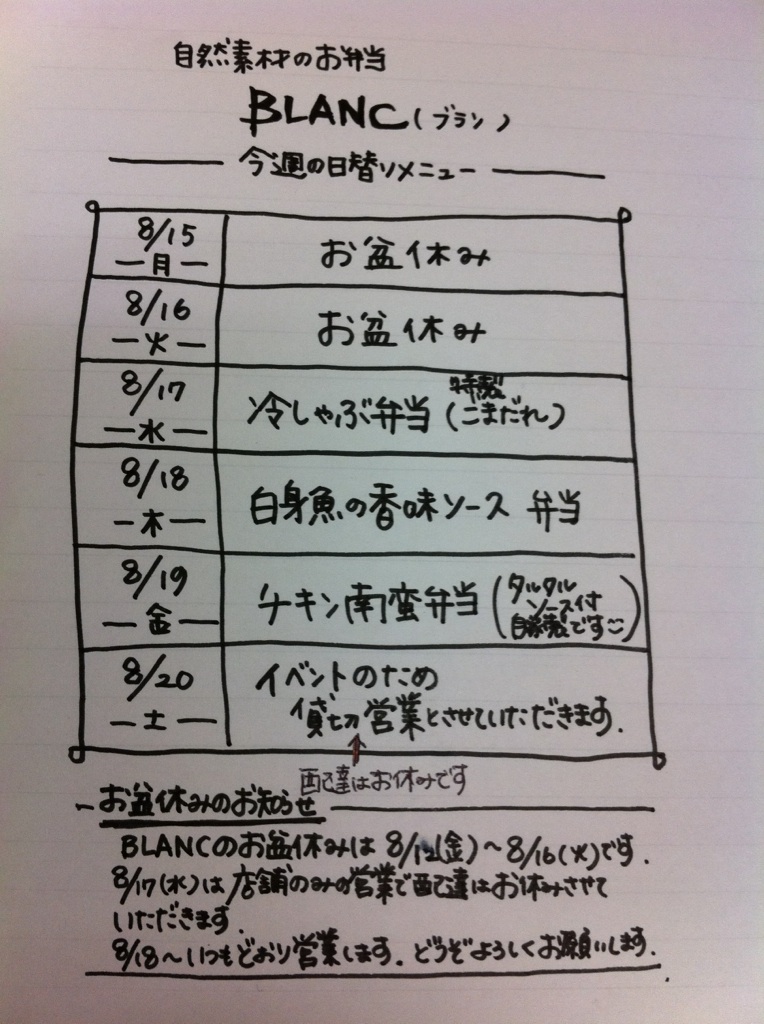 自然素材のお弁当
BLANC(ブラン)
今週の日替りメニュー
8/15
月
お盆休み
8/16
火
お盆休み
8/17
水
冷しゃぶ弁当(特製ごまだれ)
8/18
木
白身魚の香味ソース 弁当
8/19
金
チキン南蛮弁当(タルタル
ソース付
自家製です)
8/20
土
イベントのため
貸切営業とさせていただきます.
↑
配達はお休みです
お盆休みのお知らせ
BLANCのお盆休みは 8/12(金)~8/16(火)です.
8/17(水)は店舗のみの営業で配達はお休みさせて
いただきます.
8/18~いつもどおり営業します. どうぞよろしくお願いします.